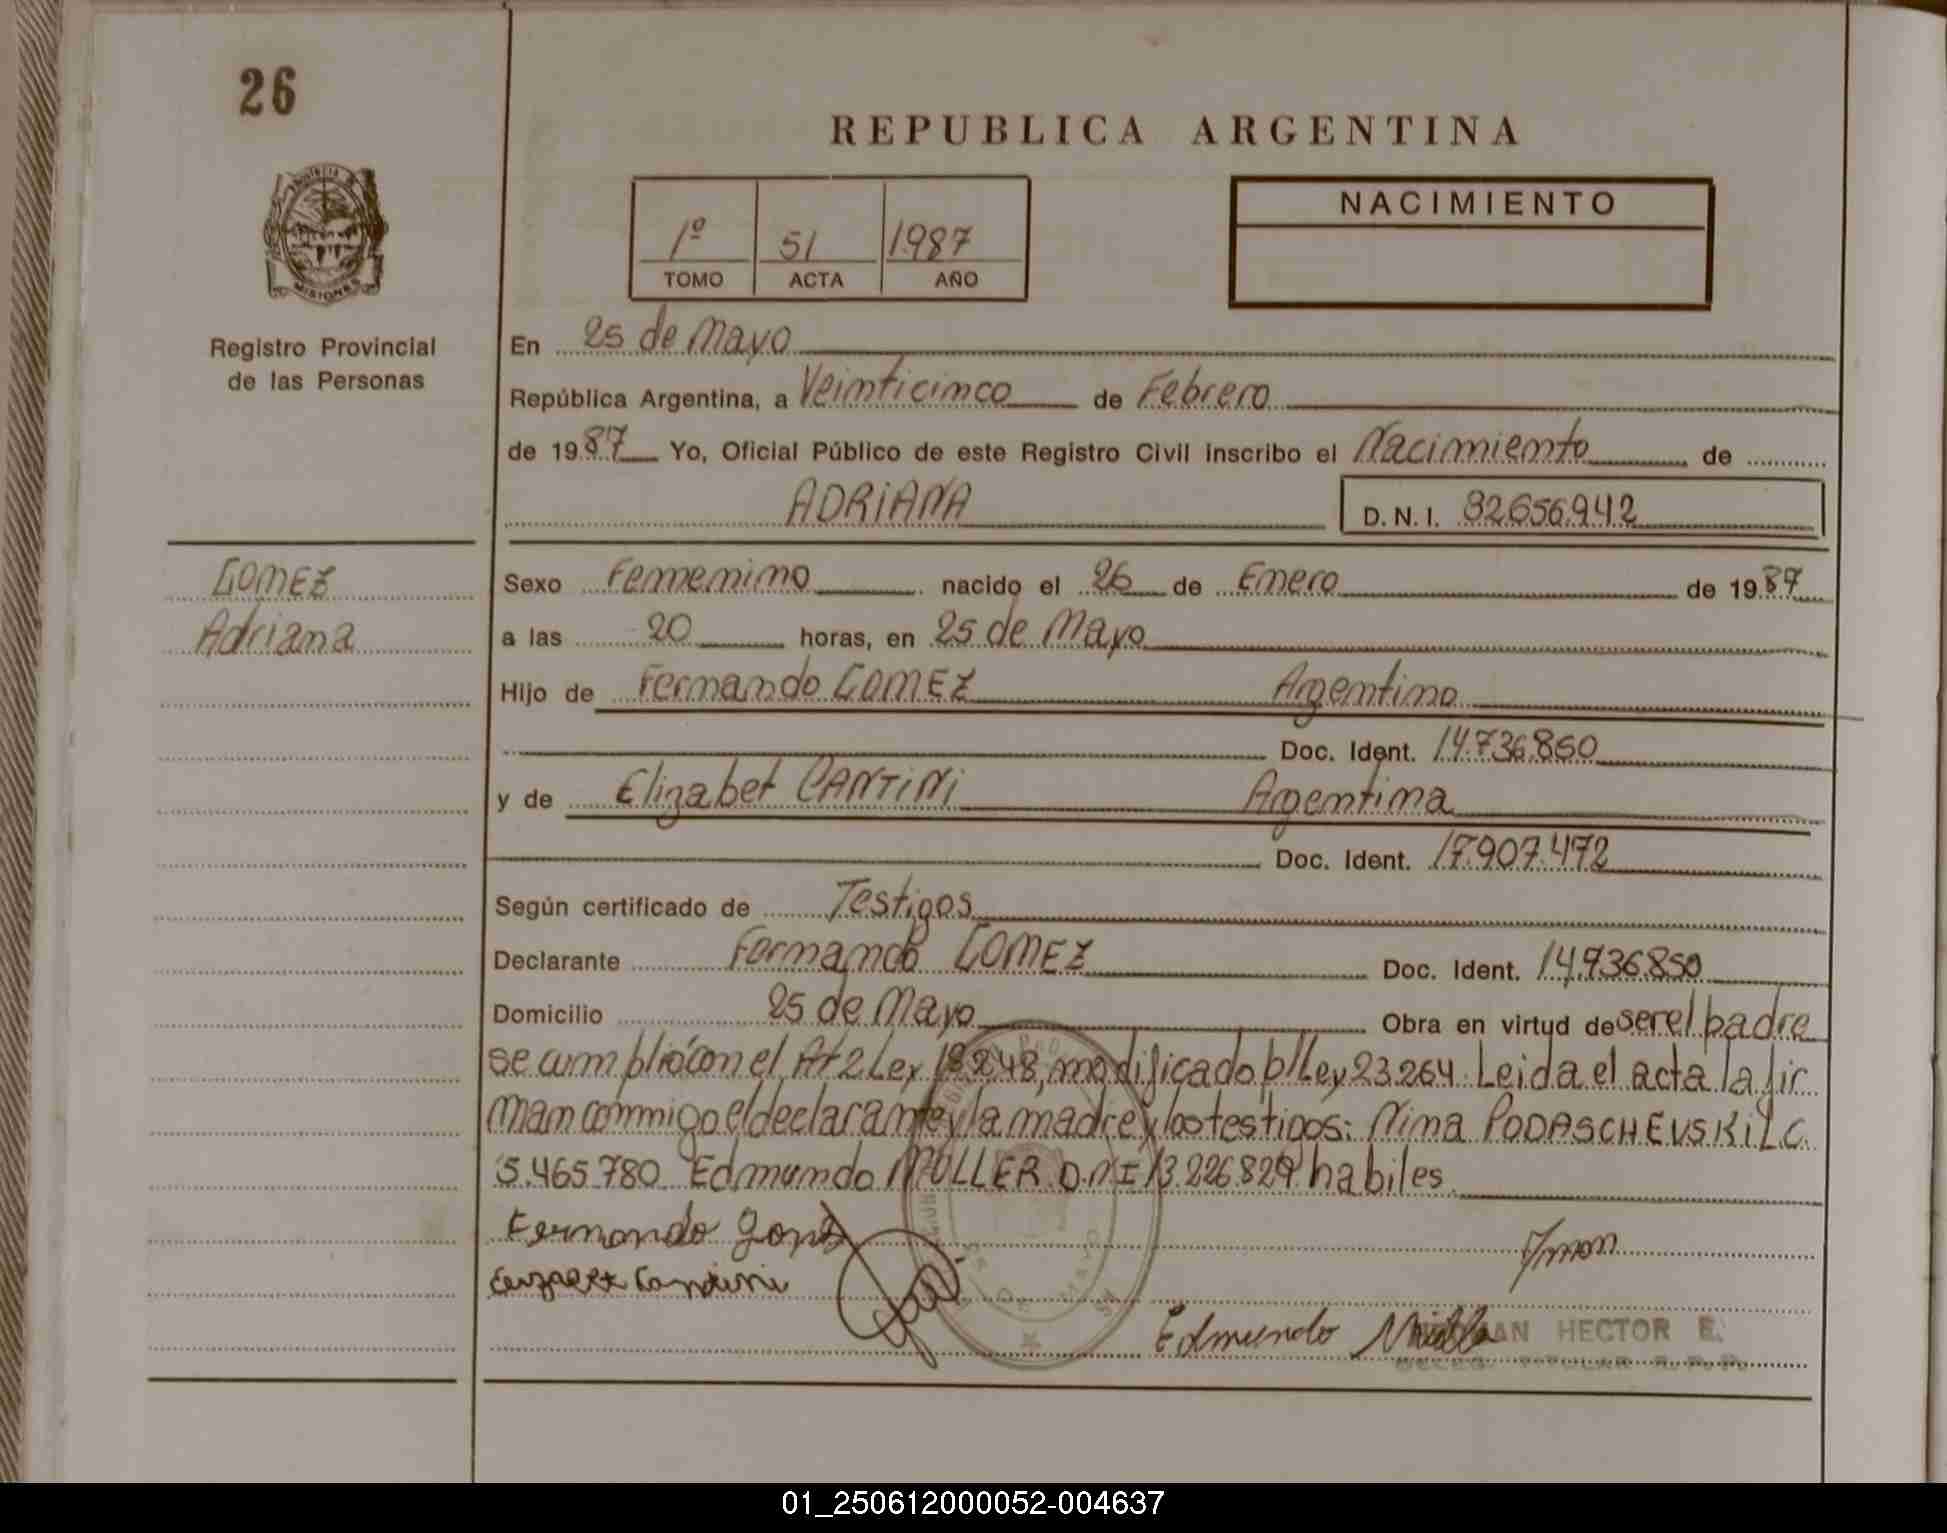 26
REPUBLICA ARGENTINA
NACIMIENTO
1º 51 1987
TOMO ACTA AÑO
MISIONES
Registro Provincial
de las Personas
En 25 de Mayo
República Argentina, a Veinticinco de Febrero
de 1987 Yo, Oficial Público de este Registro Civil inscribo el Nacimiento de
ADRIANA D.N.I. 32656942
GOMEZ
Adriana
Sexo Femenino nacido el 26 de Enero de 1987
a las 20 horas, en 25 de Mayo
Hijo de Fernando GOMEZ Argentino
Doc. Ident. 14.736.850
y de Elizabet CANTINI Argentina
Doc. Ident. 17.907.472
Según certificado de Testigos
Declarante Fernando GOMEZ Doc. Ident. 14.736.850
Domicilio 25 de Mayo Obra en virtud de ser el padre
se cumplió con el Art 2 Ley 18.248, modificado p/Ley 23.264. Leida el acta la fir
man conmigo el declarante y la madre y los testigos: Nina PODASCHEVSKI L.C.
5.465.780 Edmundo MULLER D.N.I 13.226.829 habiles
Fernando
Edmundo
HECTOR E.
25 DE MAYO
01_250612000052-004637